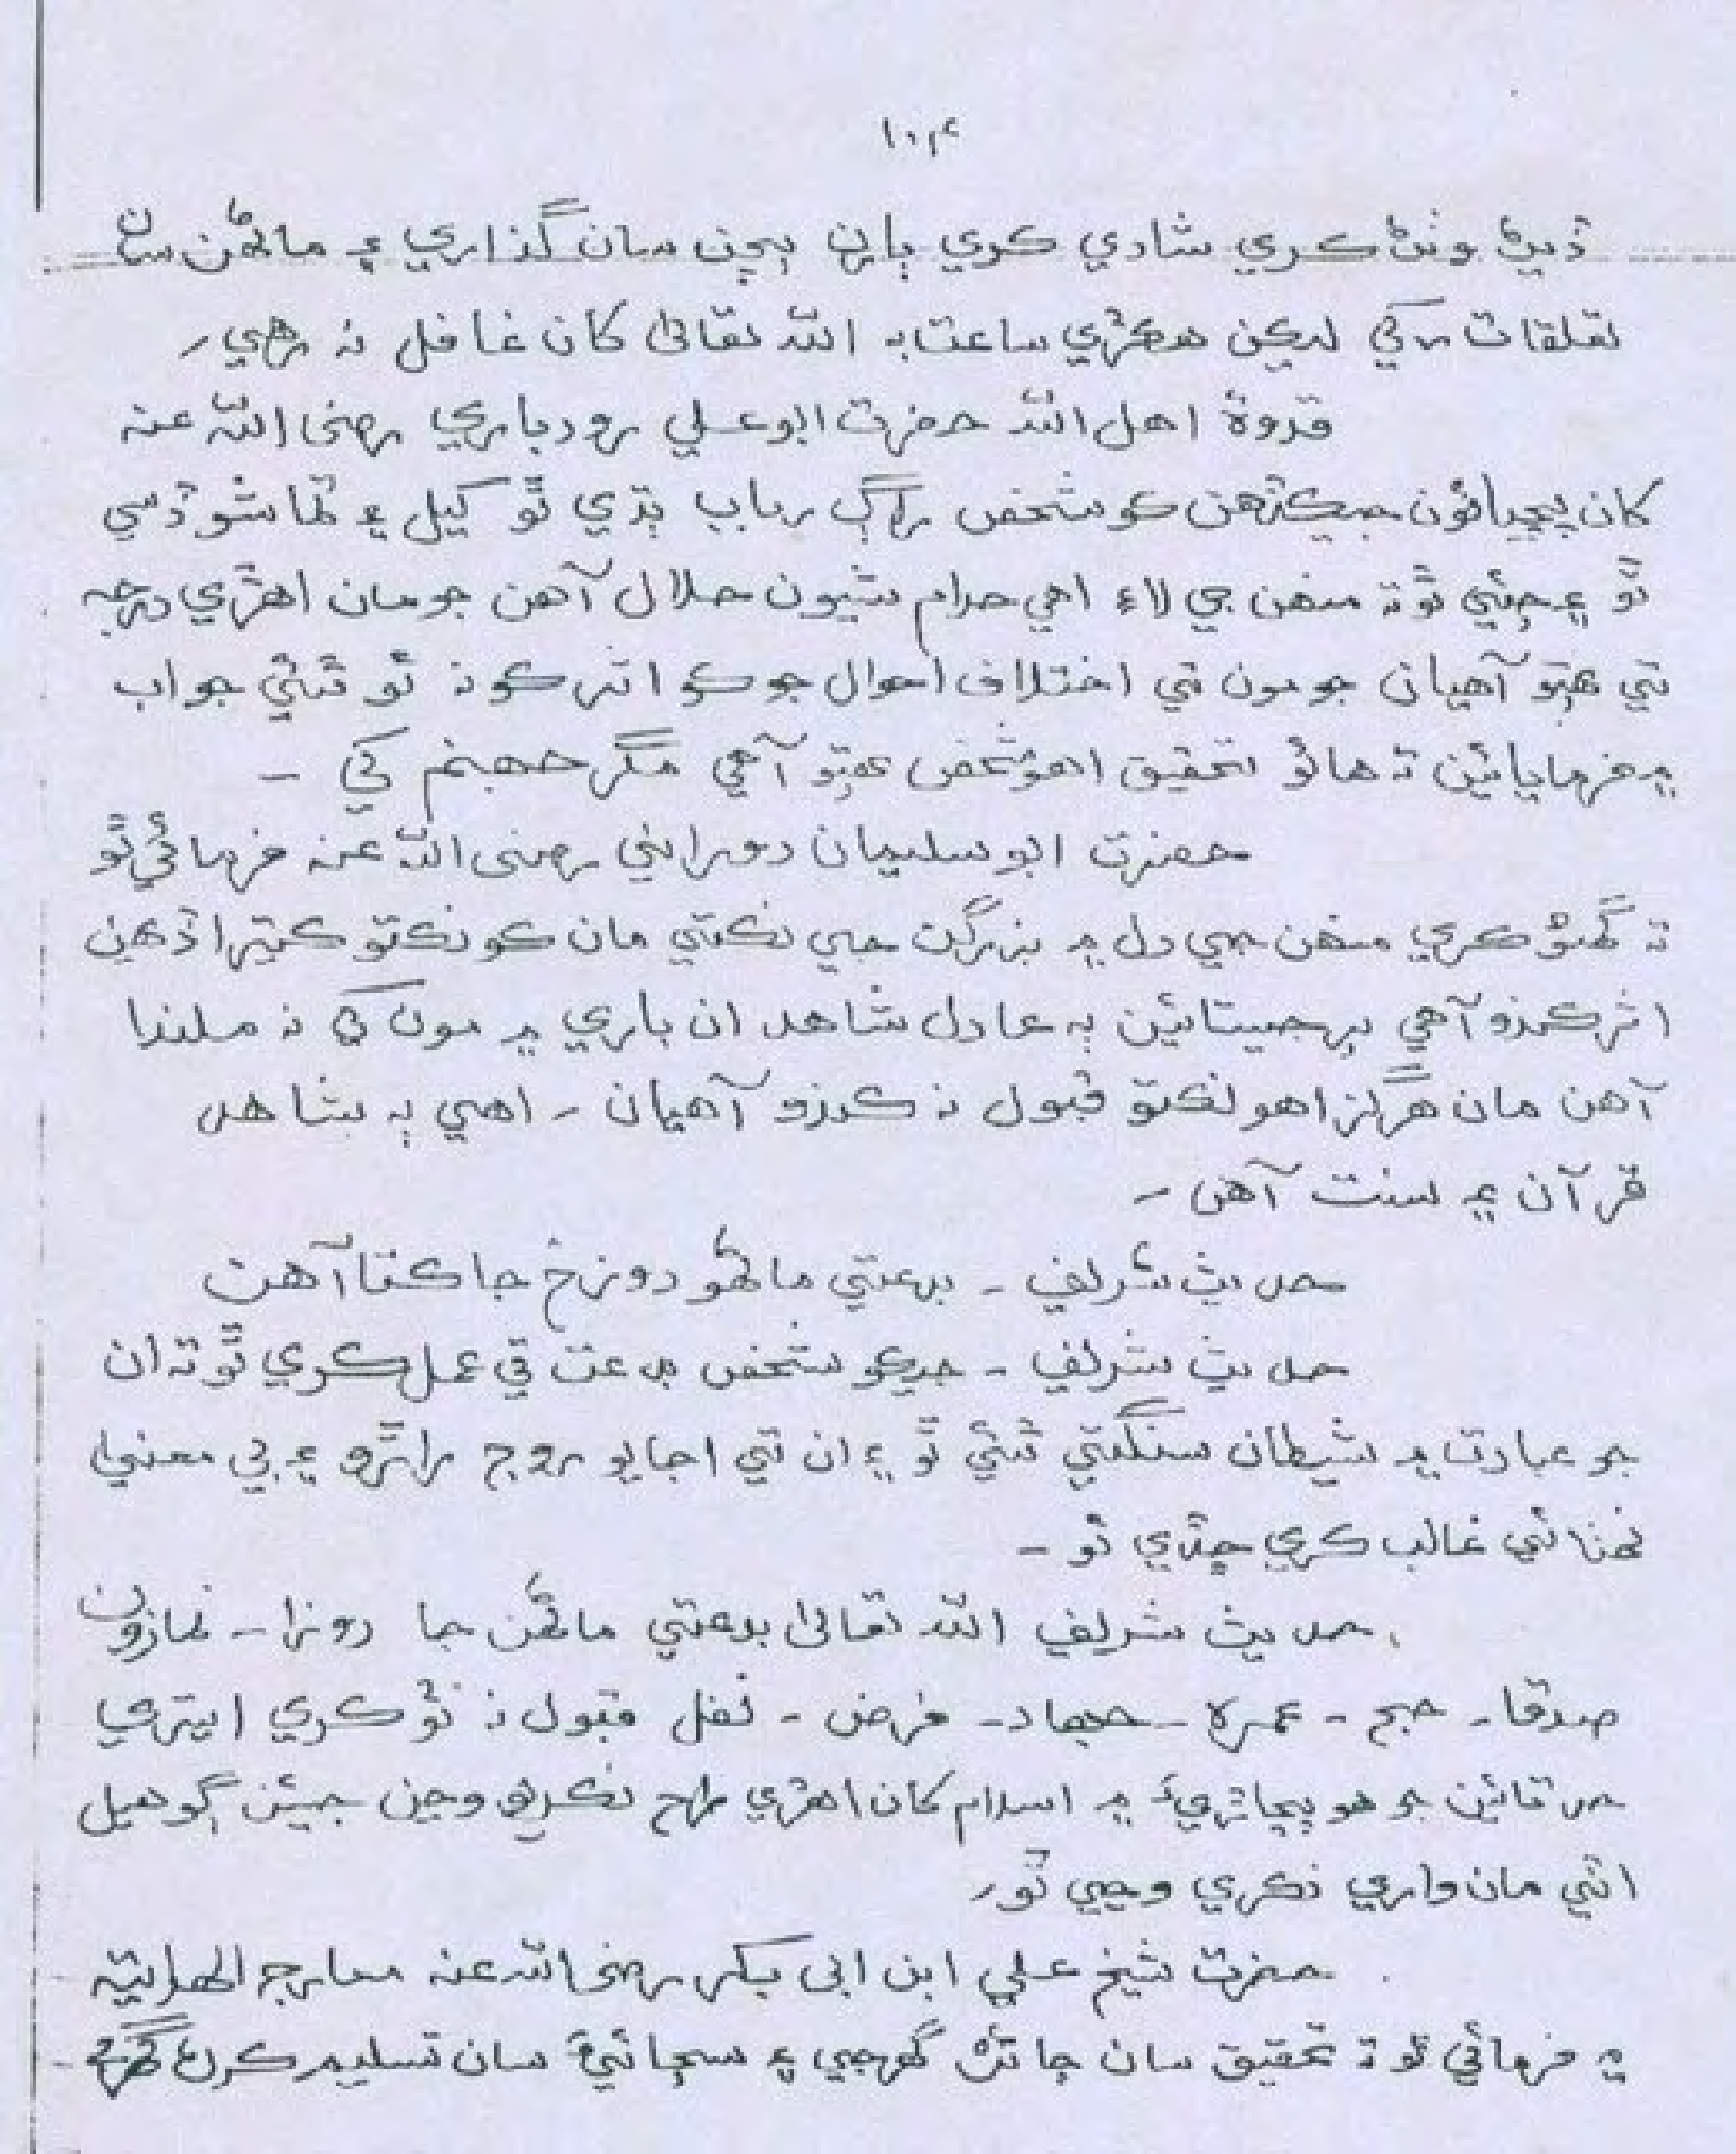 ١٠٤
ڏيڻ وٺڻ ڪري شادي ڪري ٻارن ٻچن سان گذاري ۽ ماڻهن سان
تعلقات رکي ليڪن هڪڙي ساعت به الله تعاليٰ کان غافل نه رهي۔
قدوة اهل الله حضرت ابو علي رودباري رضي الله عنه
کان پڇيائون جيڪڏهن ڪو شخص راڳ رباب ٻڌي ٿو کيل ۽ تماشو ڏسي
ٿو ۽ چئي ٿو ته منهن جي لاءِ اهي حرام شيون حلال آهن جو مان اهڙي درجه
تي هتو آهيان جو مون تي اختلاف احوال جو ڪو اثر ڪو نه ٿو ٿئي جواب
۾ فرمايائين ته هائو تحقيق اهو شخص هتو آهي مگر جهنم کي -
حضرت ابو سليمان دوراني رضي الله عنه فرمائي ٿو
ته گهڻو ڪري منهن جي دل ۾ بزرگن جي نڪتي مان ڪو نڪتو ڪيترا ڏهن
اثر ڪندو آهي پر جيستائين ٻه عادل شاهد ان باري ۾ مون کي نه ملندا
آهن مان هرگز اهو نڪتو قبول نه ڪندو آهيان - اهي ٻه شاهد
قرآن ۽ سنت آهن -
حديث شريف - بدعتي ماڻهو دوزخ جا ڪتا آهن
حديث شريف - جيڪو شخص بدعت تي عمل ڪري ٿو ته ان
جو عبادت ۾ شيطان سنگتي ٿئي ٿو ۽ ان تي اجايو روڄ راڙو ۽ بي معنيٰ
غالب ڪري ڇڏي ٿو -
حديث شريف الله تعاليٰ بدعتي ماڻهن جا روزا - نمازون
صدقا - حج - عمره - جهاد - فرض - نفل قبول نه ٿو ڪري ايتري
حد تائين جو هو پڇاڙيءَ ۾ اسلام کان اهڙي طرح نڪريو وڃن جيئن ڳوهيل
اٽي مان وار نڪري وڃي ٿو۔
حضرت شيخ علي ابن ابي بڪر رضي الله عنه معارج الهدايته
۾ فرمائي ٿو ته تحقيق سان ڄاڻڻ گهرجي ۽ سچائيءَ سان تسليم ڪرڻ گهرجي